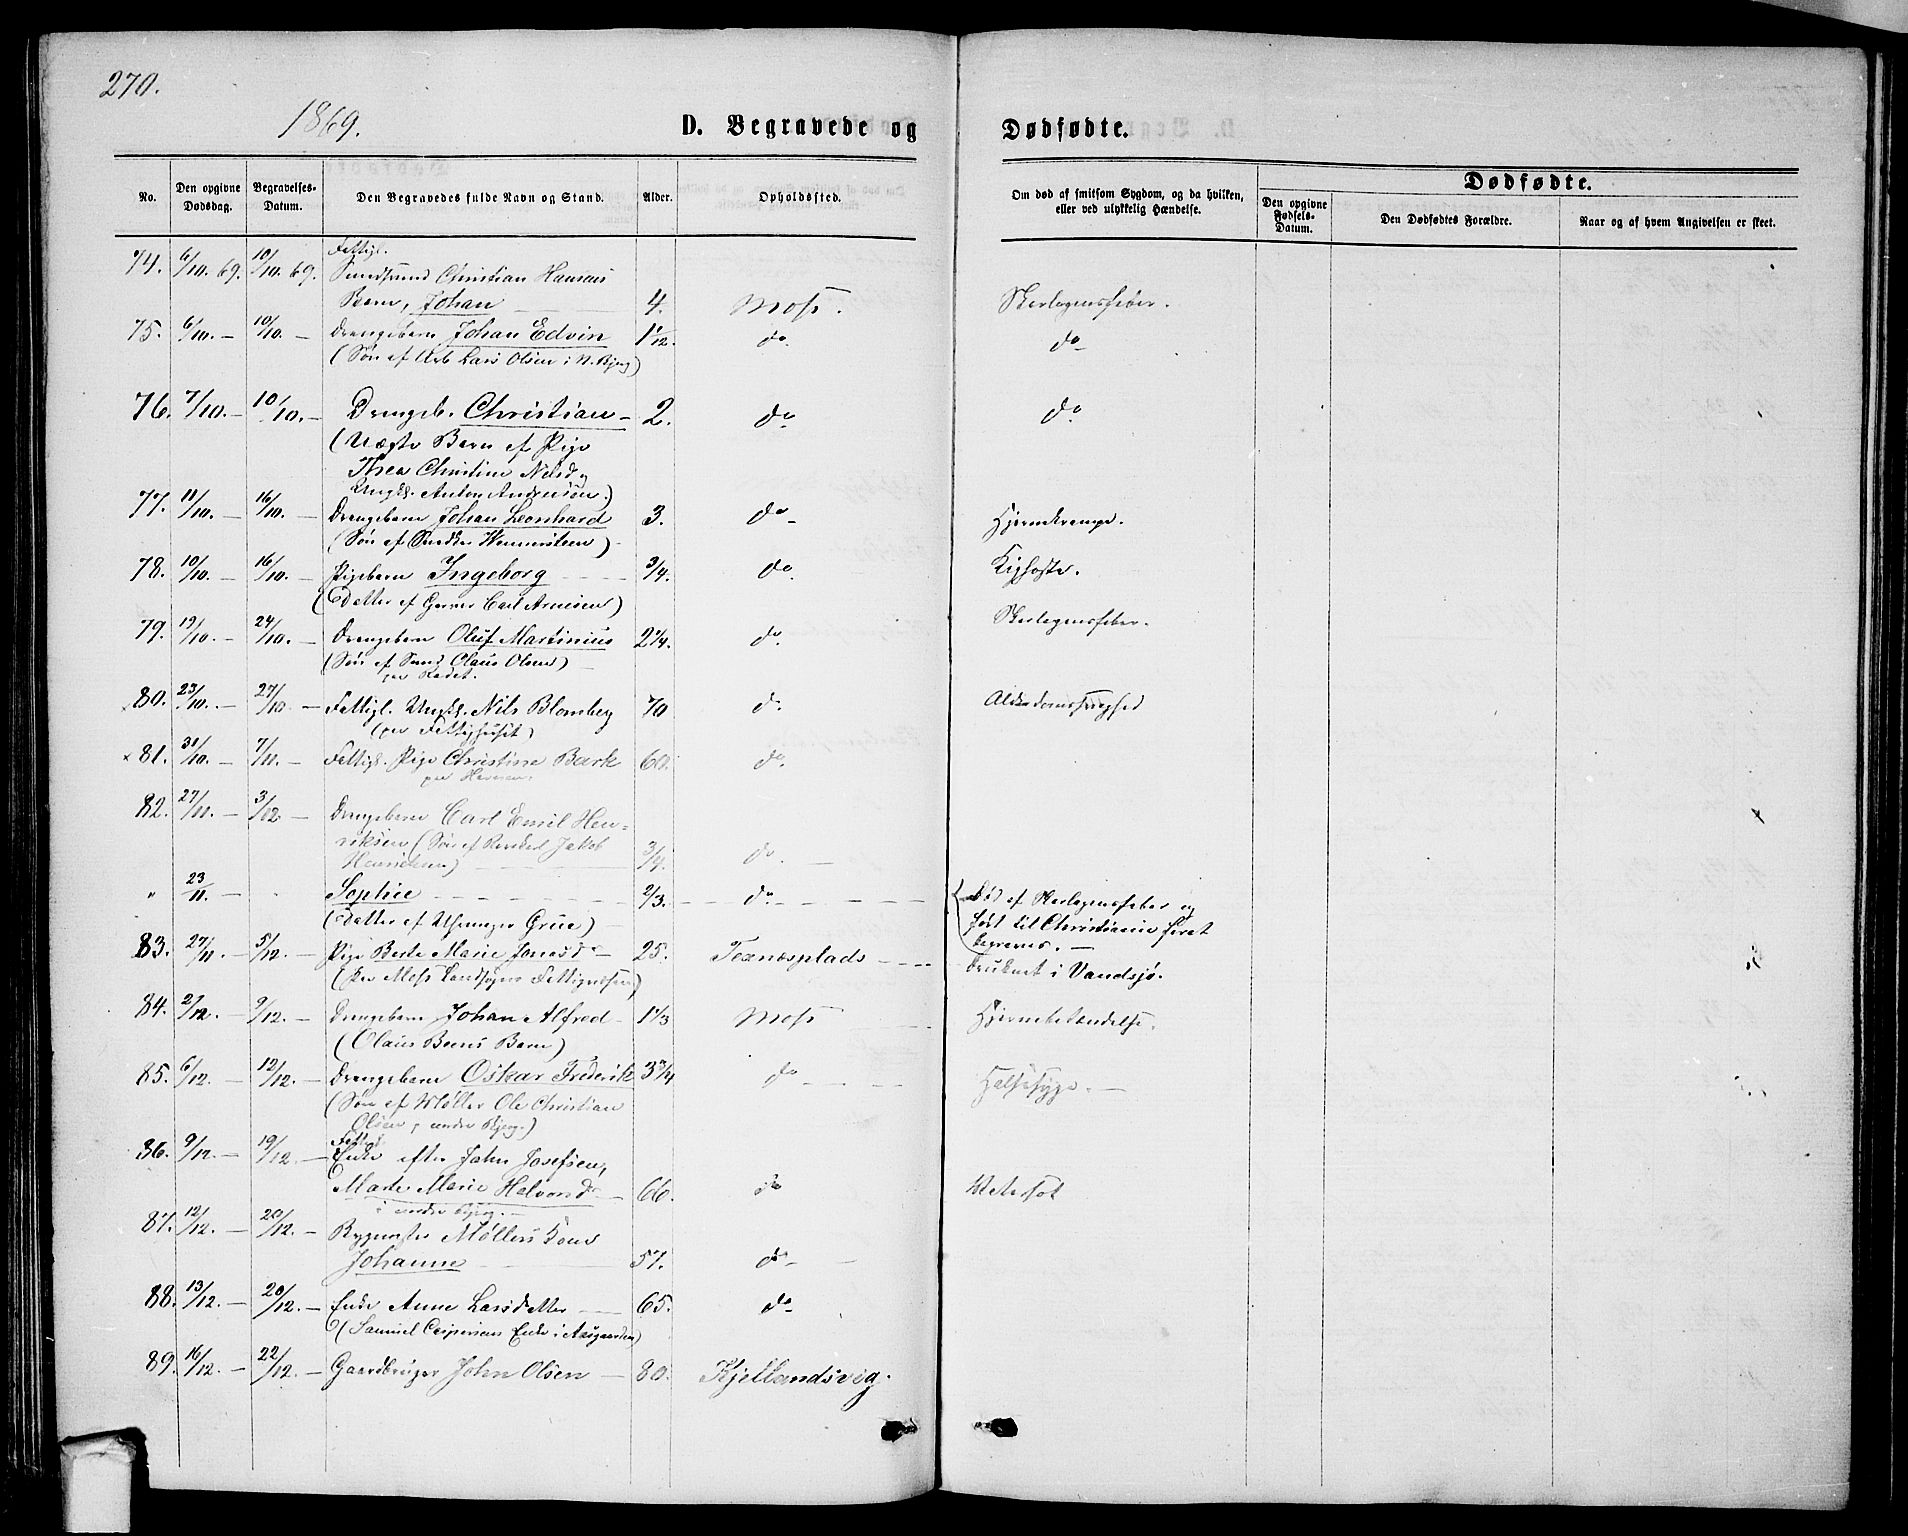 270.
1869.
D. Begravede og Dødfødte.
No. Den opgivne Dødsdag. Begravelses-Datum. Den Begravedes fulde Navn og Stand. Alder. Opholdssted. Om død af smitsom Sygdom, og da hvilken, eller ved ulykkelig Hændelse. Dødfødte.
Den opgivne Fødsels-Datum. Den Dødfødtes Forældre. Naar og af hvem Angivelsen er skeet.
74. 6/10. 69. 10/10. 69. Fattigl.
Christian Hansens
Barn, Johan 4. Moss. Skarlagensfeber.
75. 6/10. — 10/10. — Drengebarn Johan Edvin 1 1/12. do do
(Søn af Arb Lars Olsen i N. Bjerg)
76. 7/10. — 10/10. — Drengeb. Christian — 2. do do
(Uægte Barn af Pige
Thea Christine Nilsd. og
Ungk. Anton Andersen.)
77. 11/10. — 16/10. — Drengebarn Johan Leonhard 3. do Hjernekrampe.
(Søn af Snedker)
78. 10/10. — 16/10. — Pigebarn Ingeborg 3/4. do. Kighoste.
(Datter af Garver Carl Arnesen)
79. 19/10. — 24/10. — Drengebarn Oluf Martinius 2 1/4. do. Skarlagensfeber.
(Søn af Claus Olsen)
80. 23/10. — 27/10. — Fattigl. Ungk. Nils Blomberg 70 do. Alderdomssvaghed
(paa Fattighuset)
× 81. 31/10. — 7/11. — Fattigl. Pige Christine Bark 60. do.
82. 27/11. — 3/12. — Drengebarn Carl Emil Hen-
riksen (Søn af Jakob
Henriksen) 3/4. do. —
" 23/11. — Sophie 2/3. do. Død af Skarlagensfeber og
(Datter af Grue) ført til Christiania for at
begraves. —
83. 27/11. — 5/12. — Pige Berte Marie Jonasdr — 25. Texnæsplads Druknet i Vandsjø.
(paa Moss Landsogns Fattigvæsen)
84. 2/12. — 9/12. — Drengebarn Johan Alfred 1 1/3 Moss Hjernebetændelse.
(Olaus Barn)
85. 6/12. — 12/12. — Drengebarn Oskar Frederik 3 3/4 do Halssyge. —
(Søn af Møller Ole Christian
Olsen, under Bjerg.)
86. 9/12. — 19/12. — Fattigl.
Enke efter John Josefsen,
Marte Marie Halvorsdr — 66. do Vatersot
i under Bjerg. —
87. 12/12. — 20/12. — Møllers Kone
Johanne 57. do —
88. 13/12. — 20/12. — Enke Anne Larsdatter 65. do
(Samuel Caspersens Enke i)
89. 16/12. — 22/12. — Gaardbruger John Olsen — 80. Kjellandsvig.